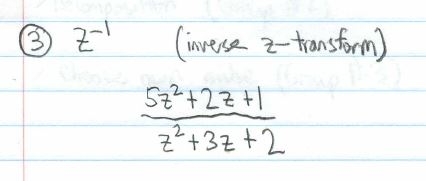 ③ z⁻¹ (inverse z-transform)
5z²+2z+1
z²+3z+2